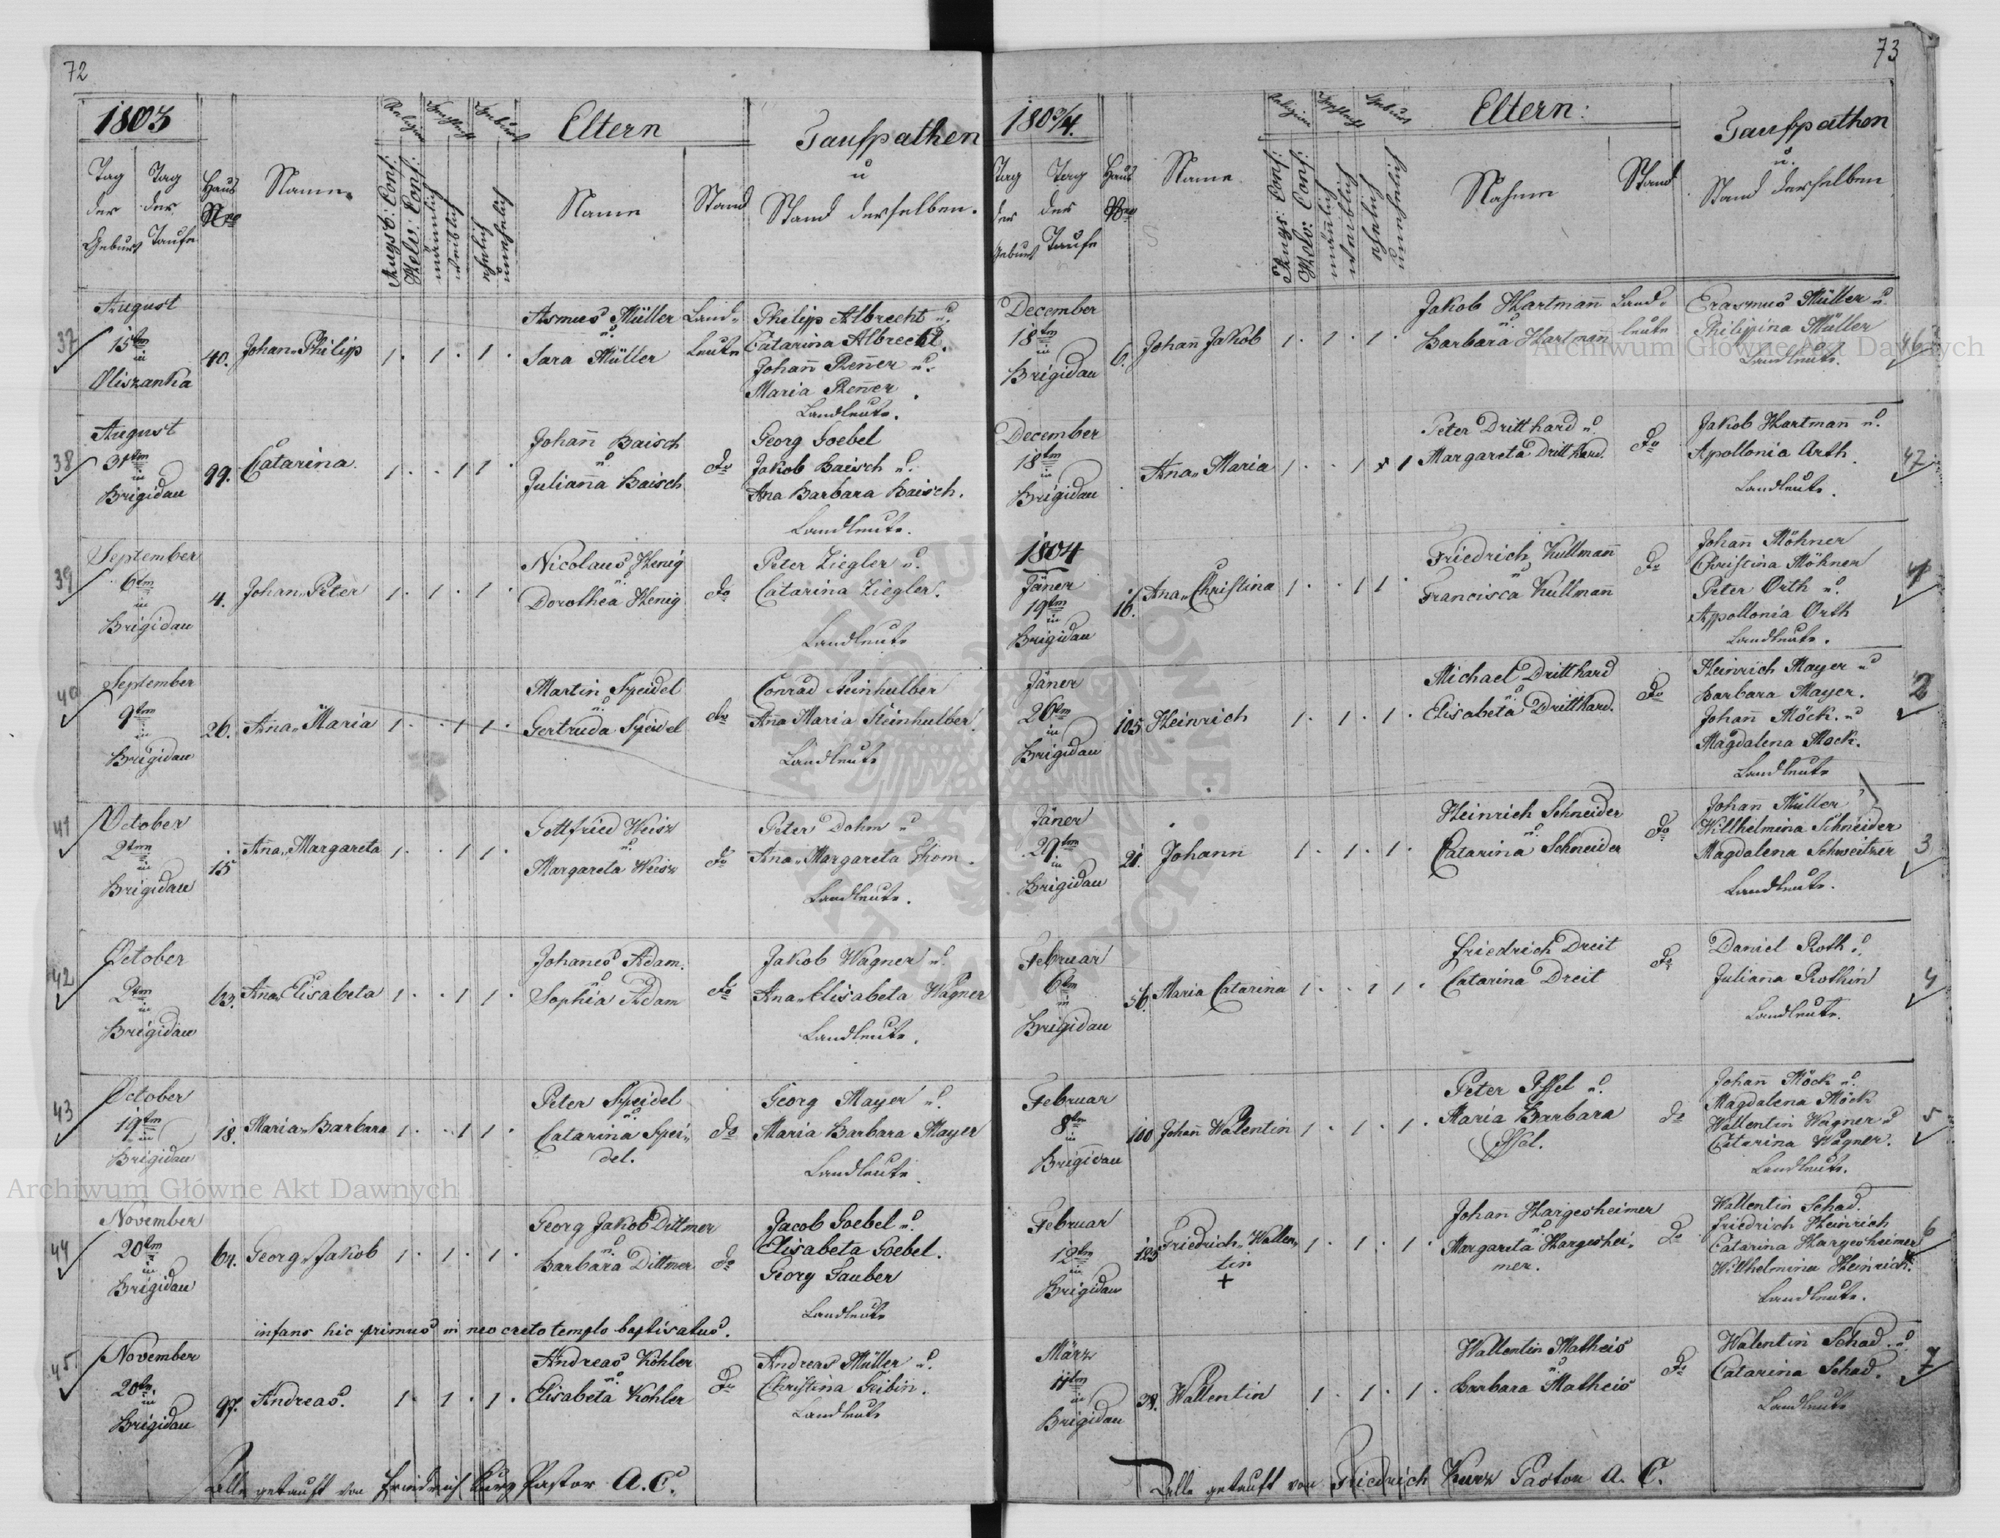 72
1803
Religion
Geschlecht
Geburt
Eltern
Taufpathen
u
Stand derselben.
Tag der Geburt
Tag der Taufe
Haus Nro
Name
Augsb: Conf:
Helv: Conf:
männlich
weiblich
ehelich
unehelich
Name
Stand
37
August
15tn
in
Oliszanka
40.
Johan Philip
1 . 1 . 1 .
Asmus Müller
u.
Sara Müller
Land-
leute
Philip Albrecht u.
Catarina Albrecht.
Johann Renner u.
Maria Renner.
Landleute.
38
August
31tn
in
Brigidau
99.
Catarina.
1 . . 1 1 .
Johann Baisch
u.
Juliana Baisch
do
Georg Goebel
Jakob Baisch u.
Ana Barbara Baisch.
Landleute.
39
September
6tn
in
Brigidau
4.
Johan Peter
1 . 1 . 1 .
Nicolaus Henig
u.
Dorothea Henig
do
Peter Ziegler u.
Catarina Ziegler.
Landleute
40
September
9tn
in
Brigidau
26.
Ana Maria
1 . . 1 1 .
Martin Speidel
u.
Gertruda Speidel
do
Conrad Steinhulber
Ana Maria Steinhulber.
Landleute
41
October
2ten
in
Brigidau
15
Ana Margareta
1 . . 1 1 .
Gottfried Weisz
u.
Margareta Weisz
do
Peter Dohm u
Ana Margareta Thom.
Landleute.
42
October
2ten
in
Brigidau
63.
Ana Elisabeta
1 . . 1 1 .
Johanes Adam.
u.
Sophia Adam
do
Jakob Wagner u.
Ana Elisabeta Wagner
Landleute.
43
October
19tn
in
Brigidau
18.
Maria Barbara
1 . . 1 1 .
Peter Speidel
u.
Catarina Spei-
del.
do
Georg Mayer u.
Maria Barbara Mayer
Landleute
44
November
20tn
in
Brigidau
64.
Georg Jakob
1 . 1 . 1 .
Georg Jakob Dittmer
u.
Barbara Dittmer
do
Jacob Goebel u.
Elisabeta Goebel.
Georg Tauber
Landleute
infans hic primus in neo creto templo baptisatus.
45.
November
20tn.
in
Brigidau
97.
Andreas.
1 . 1 . 1 .
Andreas Köhler
u.
Elisabeta Köhler
do
Andreas Müller u.
Christina
Landleute
alle getauft von Friedrich Kurz Pastor A. C.
73
1803/4.
Religion
Geschlecht
Geburt
Eltern:
Taufpathen
u.
Stand derselben
Tag der Geburt
Tag der Taufe
Haus Nro
Name
Augs: Conf:
Helv: Conf:
männlich
weiblich
ehelich
unehelich
Nahme
Stand
December
18tn
in
Brigidau
6.
Johann Jakob
1 . 1 . 1 .
Jakob Hartmann
u.
Barbara Hartmann
Land-
leute
Erasmus Müller u.
Philipina Müller
Landleute.
46
December
18tn
in
Brigidau
Ana Maria
1 . . 1 . 1
Peter Dritthard u.
Margareta Dritthard.
do
Jakob Hartmann u.
Apollonia Orth
Landleute.
47
1804
Jäner
19tn
in
Brigidau
16.
Ana Christina
1 . . 1 1 .
Friedrich Kullmann
u.
Francisca Kullmann
do
Johann Möhner
Christina Möhner
Peter Orth u.
Apollonia Orth
Landleute.
1
Jäner
26tn
in
Brigidau
105
Heinrich
1 . 1 . 1 .
Michael Dritthard
u.
Elisabeta Dritthard.
do
Heinrich Mayer u
Barbara Mayer.
Johann Möck. u
Magdalena Mock.
Landleute
2
Jäner
29tn
in
Brigidau
21.
Johann
1 . 1 . 1 .
Heinrich Schneider
u.
Catarina Schneider
do
Johann Müller
Willhelmina Schneider
Magdalena Schweitzer
Landleute.
3
Februar
6tn
in
Brigidau
56.
Maria Catarina
1 . . 1 1 .
Friedrich Dreit
Catarina Dreit
do
Daniel Roth u.
Juliana Rothin
Landleute.
4
Februar
8tn
in
Brigidau
100
Johann Walentin
1 . 1 . 1 .
Peter Issel u.
Maria Barbara
Issel.
do
Johann Möck u.
Magdalena Möck
Wallentin Wagner u
Catarina Wagner.
Landleute.
5
Februar
12tn
in
Brigidau
Friedrich Wallen-
tin
+
1 . 1 . 1 .
Johan Hargesheimer
u.
Margareta Hargeshei-
mer.
do
Wallentin Schad.
Friedrich Heinrich
Catarina Hargesheimer
Willhelmina Heinrich.
Landleute.
6
März
11tn
in
Brigidau
38.
Wallentin
1 . 1 . 1 .
Wallentin Matheis
u.
Barbara Matheis
do
Walentin Schad. u
Catarina Schad.
Landleute
7
alle getauft von Friedrich Kurz Pastor A. C.
Archiwum Główne Akt Dawnych
Archiwum Główne Akt Dawnych